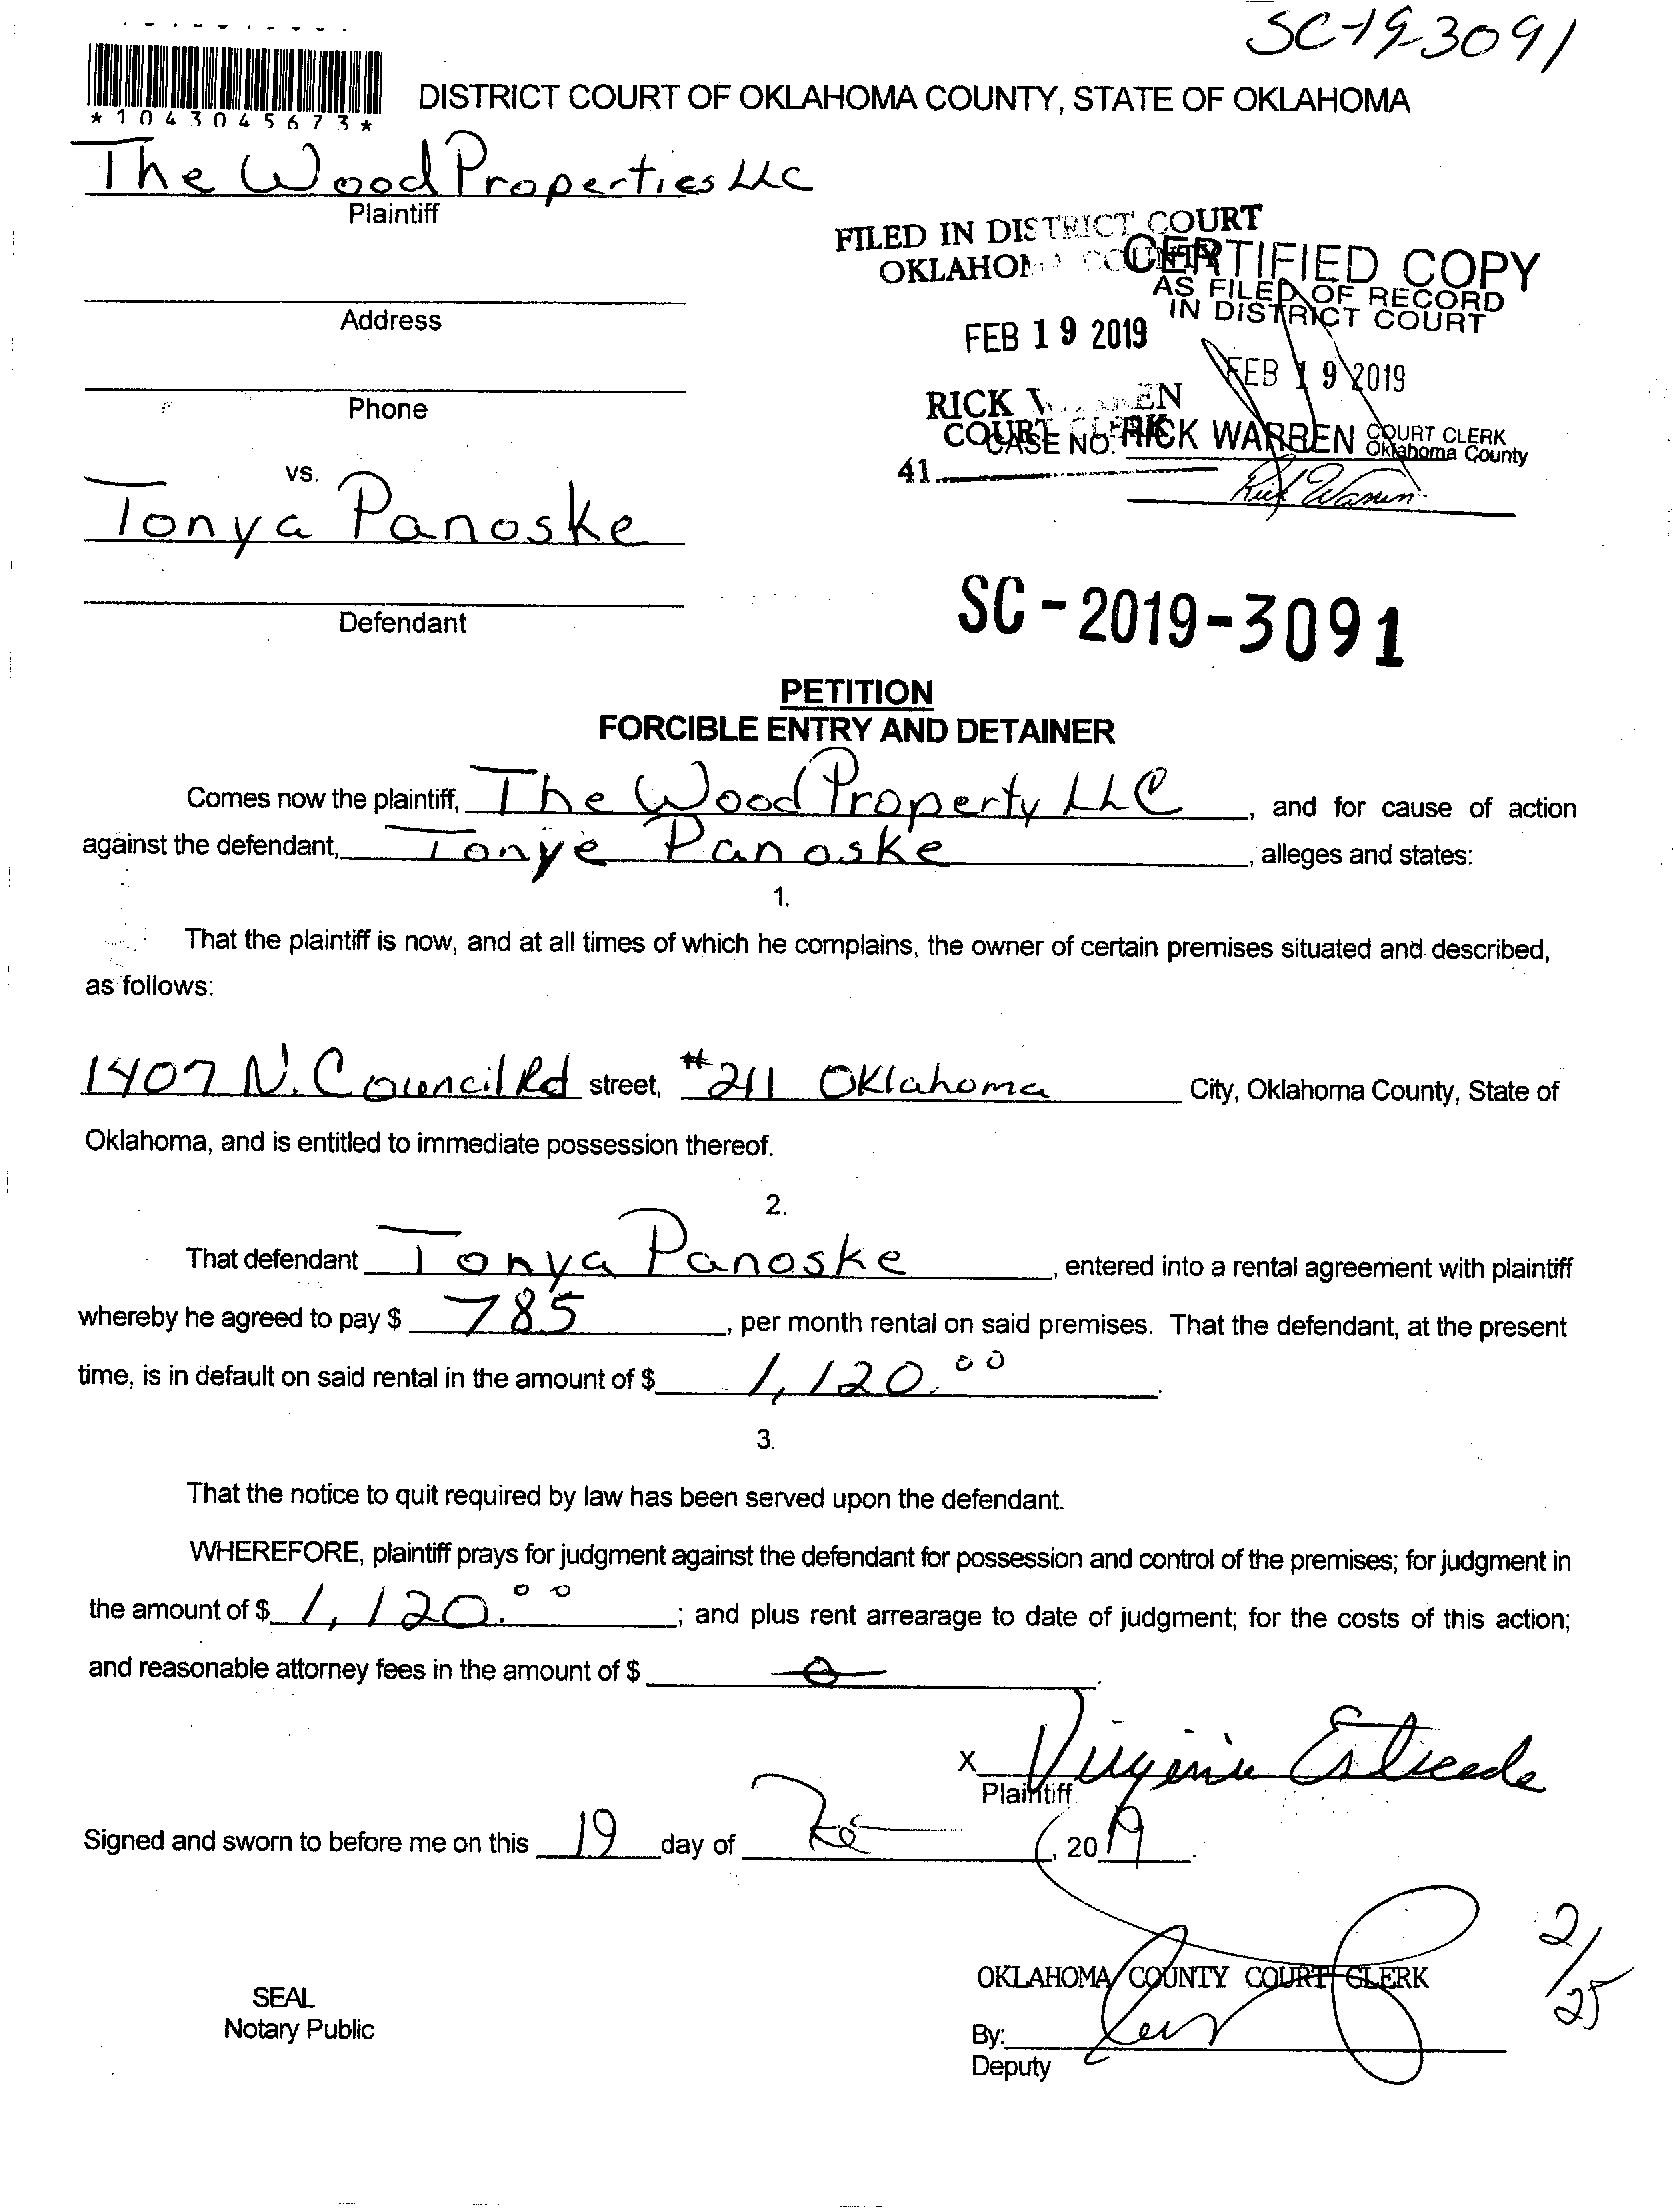 SC-19-3091
*1043045673*
DISTRICT COURT OF OKLAHOMA COUNTY, STATE OF OKLAHOMA
The Wood Properties LLC
Plaintiff
FILED IN DISTRICT COURT
OKLAHOMA COUNTY
CERTIFIED COPY
AS FILED OF RECORD
IN DISTRICT COURT
Address
FEB 19 2019
FEB 19 2019
Phone
RICK WARREN
COURT CLERK
CASE NO.
RICK WARREN COURT CLERK
Oklahoma County
41
Rick Warren
vs.
Tonya Panoske
Defendant
SC-2019-3091
PETITION
FORCIBLE ENTRY AND DETAINER
Comes now the plaintiff, The Wood Property LLC, and for cause of action
against the defendant, Tonye Panoske, alleges and states:
1.
That the plaintiff is now, and at all times of which he complains, the owner of certain premises situated and described,
as follows:
1407 N. Council Rd street, #211 Oklahoma City, Oklahoma County, State of
Oklahoma, and is entitled to immediate possession thereof.
2.
That defendant Tonya Panoske, entered into a rental agreement with plaintiff
whereby he agreed to pay $ 785, per month rental on said premises. That the defendant, at the present
time, is in default on said rental in the amount of $ 1,120.00.
3.
That the notice to quit required by law has been served upon the defendant.
WHEREFORE, plaintiff prays for judgment against the defendant for possession and control of the premises; for judgment in
the amount of $ 1,120.00; and plus rent arrearage to date of judgment; for the costs of this action;
and reasonable attorney fees in the amount of $ 0.
X Virginia Estrada
Plaintiff
Signed and sworn to before me on this 19 day of Feb, 2019.
2/25
OKLAHOMA COUNTY COURT CLERK
SEAL
Notary Public
By:
Deputy